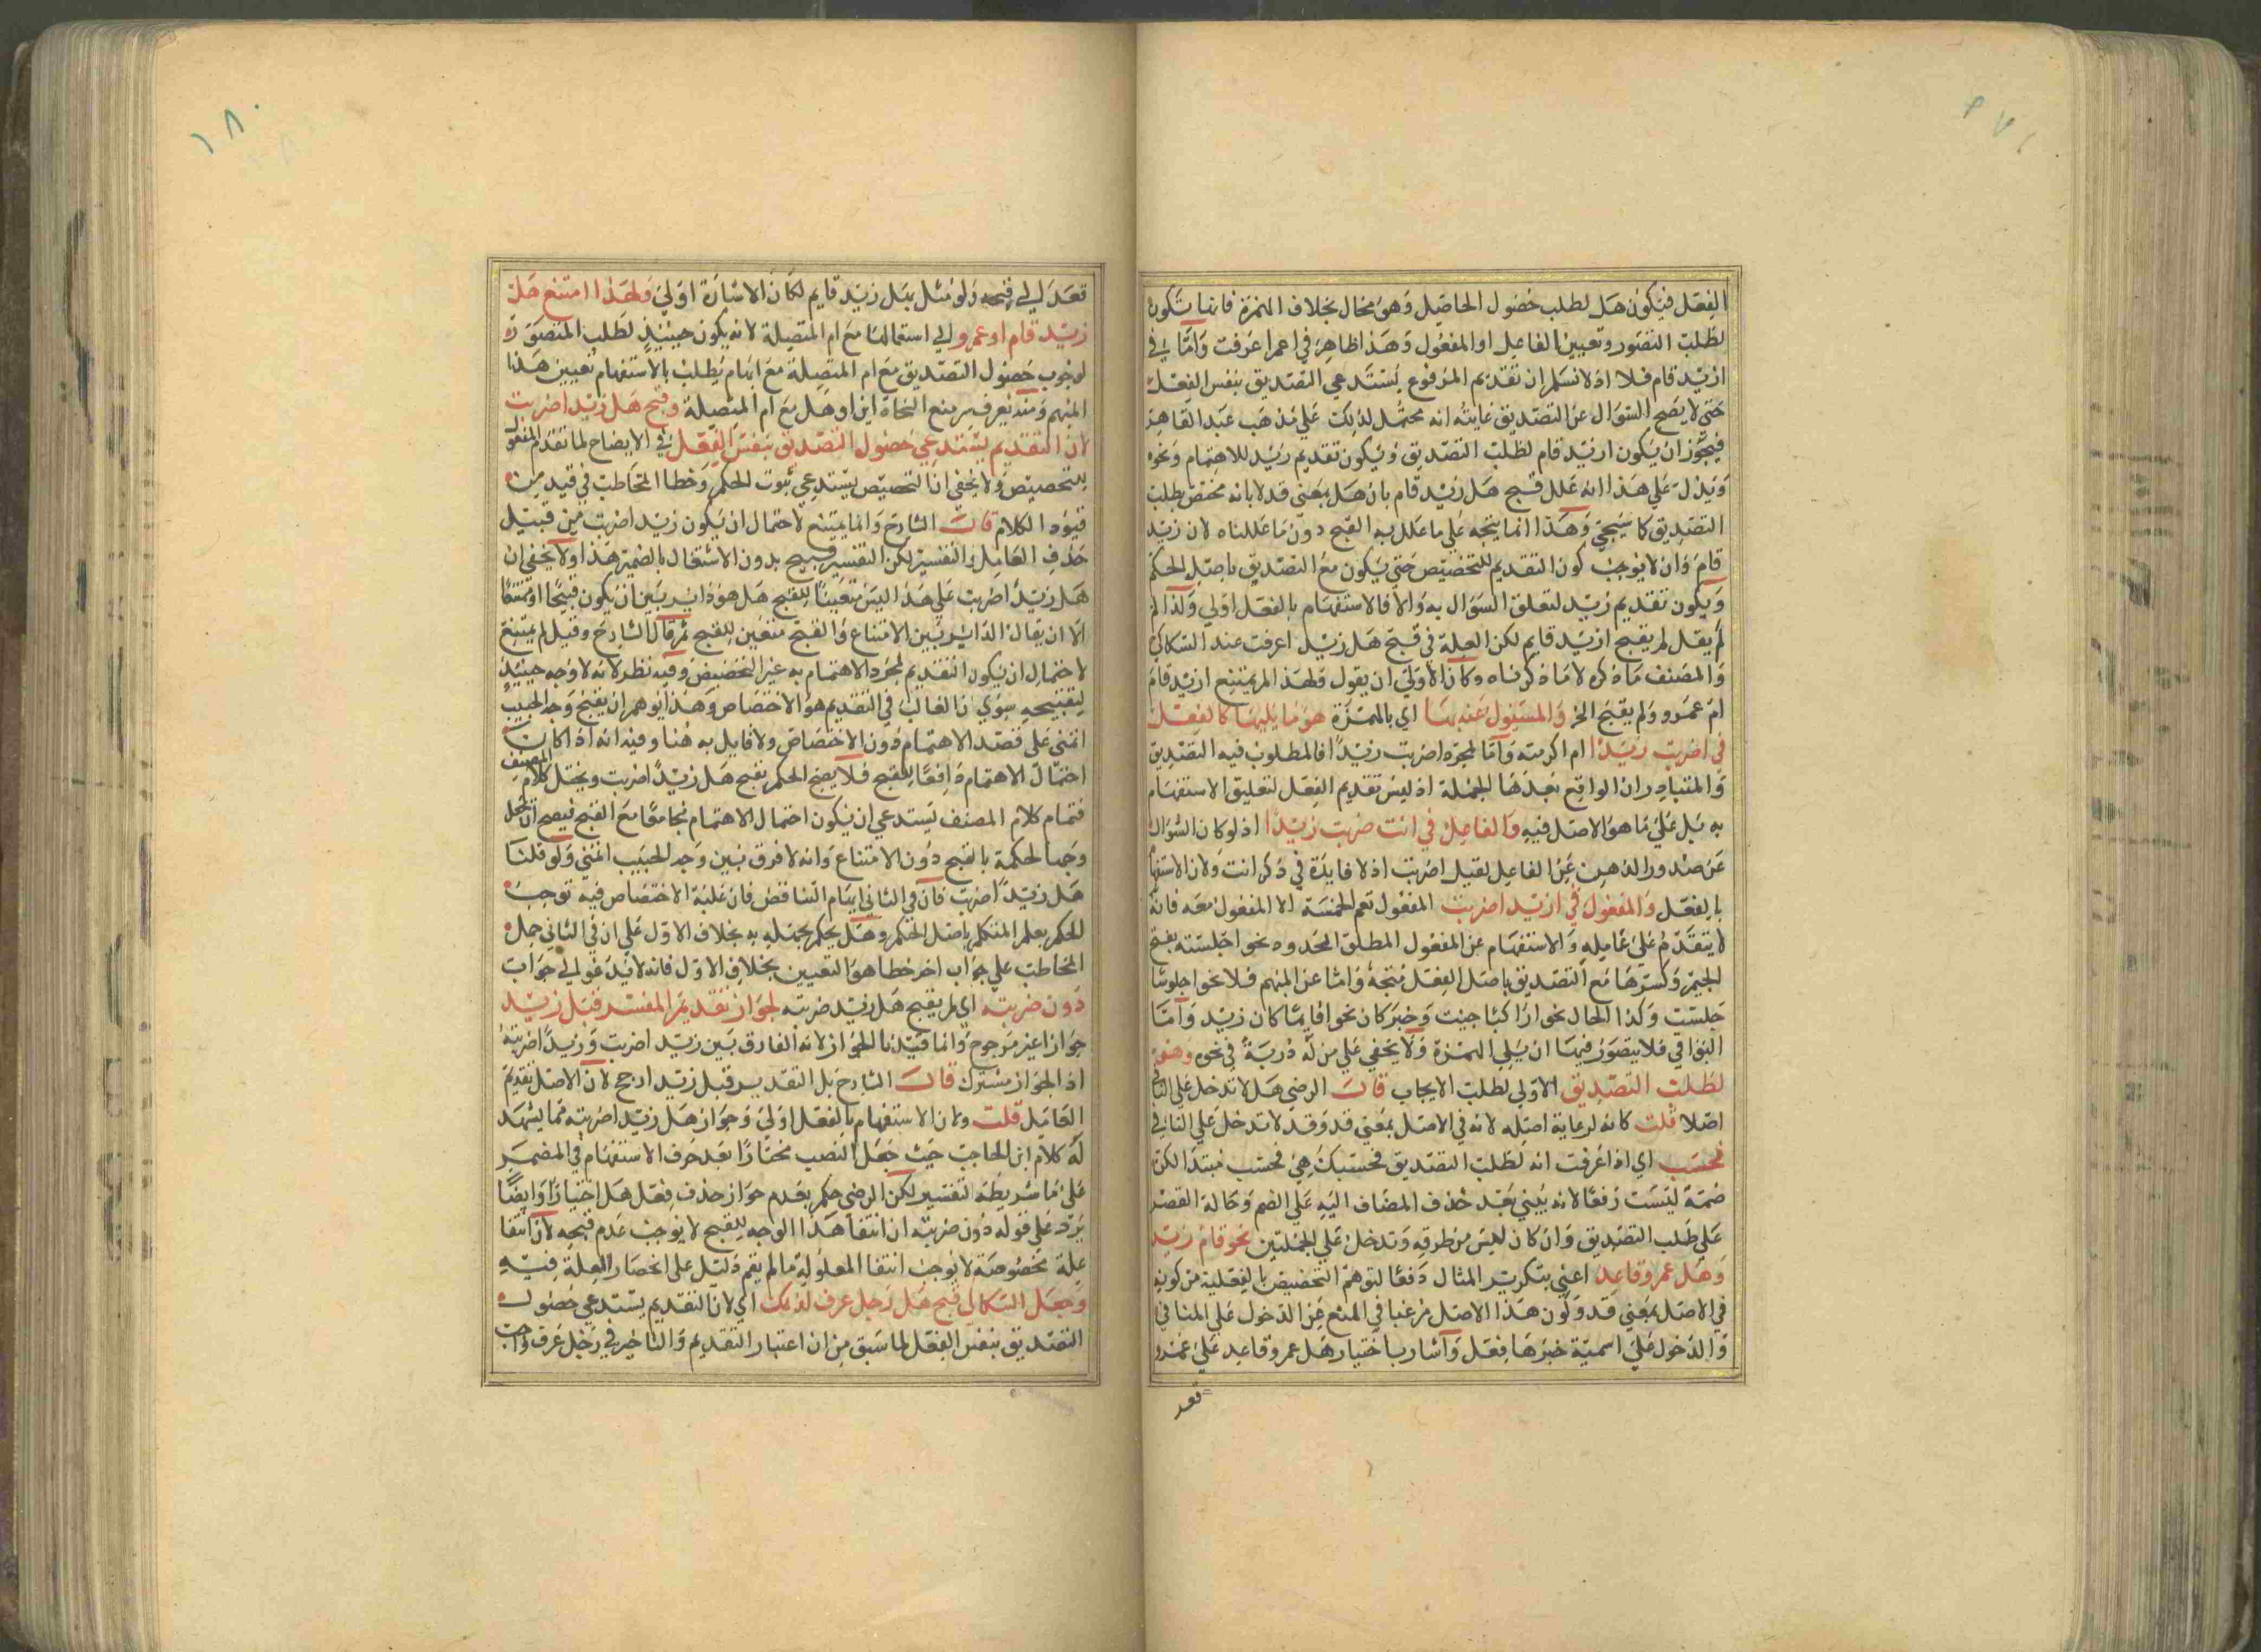 الفعل فيكون هل لطلب حصول الحاصل وهو محال بخلاف الهمزة فانها تكون
لطلب التصور وتعيين الفاعل او المفعول وهذا ظاهر في اعمرا عرفت واما في
ازيد قام فلا اذ لا نسلم ان تقديم المرفوع يستدعي التصديق بنفس الفعل
حتي لا يصح السوال عن التصديق غايته انه محتمل لذلك علي مذهب عبد القاهر
فيجوز ان يكون ازيد قام لطلب التصديق ويكون تقديم زيد للاهتمام ونحوه
ويدل علي هذا انه علل قبح هل زيد قام بان هل بمعني قد لا بانه مختص بطلب
التصديق كما سيجي وهذا انما يتجه علي ما علل به القبح دون ما عللناه لان زيد
قام وان لا يوجب كون التقديم للتخصيص حتي يكون مع التصديق باصل الحكم
ويكون تقديم زيد لتعلق السوال به والا فالاستفهام بالفعل اولي ولذا لم
لم يقل لم يقبح ازيد قايم لكن العلة في قبح هل زيد اعرفت عند السكاكي
والمصنف ما ذكره لا ما ذكرناه وكان الاولي ان يقول ولهذا لم يمتنع ازيد قام
ام عمرو ولم يقبح الخ والمسئول عنه بها اي بالهمزة هو ما يليها كالفعل
في اضربت زيدا ام اكرمته واما لمجرد اضربت زيدا فالمطلوب فيه التصديق
والمتبادر ان الواقع بعدها الجملة اذ ليس تقديم الفعل لتعليق الاستفهام
به بل علي ما هو الاصل فيه والفاعل في انت ضربت زيدا اذ لو كان السوال
عن صدور الذهن عن الفاعل لقيل اضربت اذ لا فايدة في ذكر انت ولان الاستفها
بالفعل والمفعول في ازيد اضربت المفعول تعم الخمسة الا المفعول معه فانه
لا يتقدم علي عامله والاستفهام عن المفعول المطلق المحدود نحو اجلسته بفتح
الجيم وكسرها مع التصديق باصل الفعل متجه واما عن المبهم فلا نحو اجلوسا
جلست وكذا الحال نحو اراكبا جيت وخبر كان نحو اقايما كان زيد واما
البواقي فلا يتصور فيها ان يلي الهمزة ولا يخفي علي من له دربة في نحوه وهل
لطلب التصديق الاولي لطلب الايجاب قال الرضي هل لا تدخل علي النافي
اصلا قلت كانه لرعاية اصله لانه في الاصل بمعني قد وقد لا تدخل علي النافي
فحسب اي اذا عرفت انه لطلب التصديق فحسبك هي فحسب مبتدا لكن
ضمته ليست رفعا لانه يبني بعد حذف المضاف اليه علي الضم وحالة القصر
علي طلب التصديق وان كان ليس من طرقه وتدخل علي الجملتين نحو قام زيد
وهل عمرو قاعد اعني بتكرير المثال دفعا لتوهم التخصيص بالفعلية من كونه
في الاصل بمعني قد وكون هذا الاصل مرغبا في المنع عن الدخول علي المنافي
والدخول علي اسمية خبرها فعل واشار باختيار هل عمرو قاعد علي عمرو
قعد
١٨٠
قعد الي قبحه ولو مثل ببل زيد قايم لكان الاشارة اولي ولهذا امتنع هل
زيد قام ام عمرو الي استعمالها مع ام المتصلة لانه يكون حينئذ لطلب المتصور
لوجوب حصول التصديق مع ام المتصلة مع ابهام يطلب بالاستفهام تعيين هذا
المبهم ومنه يعرف سر منع النحاة اين او هل مع ام المتصلة وقبح هل زيدا ضربت
لان التقديم يستدعي حصول التصديق بنفس الفعل في الايضاح لما تقدم المفعو
للتخصيص ولا يخفي ان التخصيص يستدعي ثبوت الحكم وخطا المخاطب في قيد من
قيود الكلام قال الشارح وانما يمتنع لاحتمال ان يكون زيدا ضربت من قبيل
حذف العامل والتفسير لكن التفسير قبيح بدون الاشتغال بالضمير هذا ولا يخفي ان
هل زيدا ضربت علي هذا ليس متعينا للقبح هل هو دائر بين ان يكون قبيحا او ممتنعا
الا ان يقال الدائر بين الامتناع والقبح متعين للقبح ثم قال الشارح وقيل لم يمتنع
لاحتمال ان يكون التقديم لمجرد الاهتمام به غير التخصيص وفيه نظر لانه لا وجه حينئذ
لتقبيحه سوي ان الغالب في التقديم هو الاختصاص وهذا يوهم ان يقبح وجه الحبيب
اتمني علي قصد الاهتمام دون الاختصاص ولا قايل به هنا وفيه انه اذا كان
احتمال الاهتمام دافعا للقبح فلا يصح الحكم بقبح هل زيدا ضربت ويختل كلام المصنف
فتمام كلام المصنف يستدعي ان يكون احتمال الاهتمام مجامعا مع القبح
وجها لحكمه بالقبح دون الامتناع وانه لا فرق بين وجه الحبيب اتمني ولو قلنا
هل زيدا ضربت فان في الثاني ايهام التناقض فان غلبة الاختصاص فيه توجب
الحكم بعلم المتكلم باصل الحكم وهل يحكم بجهله به بخلاف الاول علي ان في الثاني حمل
المخاطب علي جواب اخر خطا هو التعيين بخلاف الاول فانه لا يدعو الي جواب
دون ضربته اي لم يقبح هل زيد ضربته لجواز تقدير المفسر قبل زيد
جوازا غير مرجوح وانما قيدنا الجواز لانه الفارق بين زيدا ضربت وزيدا ضربته
اذ الجواز مشترك قال الشارح بل التقدير قبل زيد ارجح لان الاصل تقديم
العامل قلت ولان الاستفهام بالفعل اولي وجواز هل زيدا ضربته مما يشهد
له كلام ابن الحاجب حيث جعل النصب مختارا بعد حرف الاستفهام في المضمر
علي ما شريطة التفسير لكن الرضي حكم بعدم جواز حذف فعل هل اختيارا وايضا
يرد علي قوله دون ضربته ان انتفا هذا الوجه للقبح لا يوجب عدم قبحه لان انتفا
علة مخصوصة لا يوجب انتفا المعلول ما لم يقم دليل علي انحصار العلة فيه
وجعل السكاكي قبح هل رجل عرف لذلك اي لان التقديم يستدعي حصول
التصديق بنفس الفعل لما سبق من ان اعتبار التقديم والتاخير في رجل عرف واجب